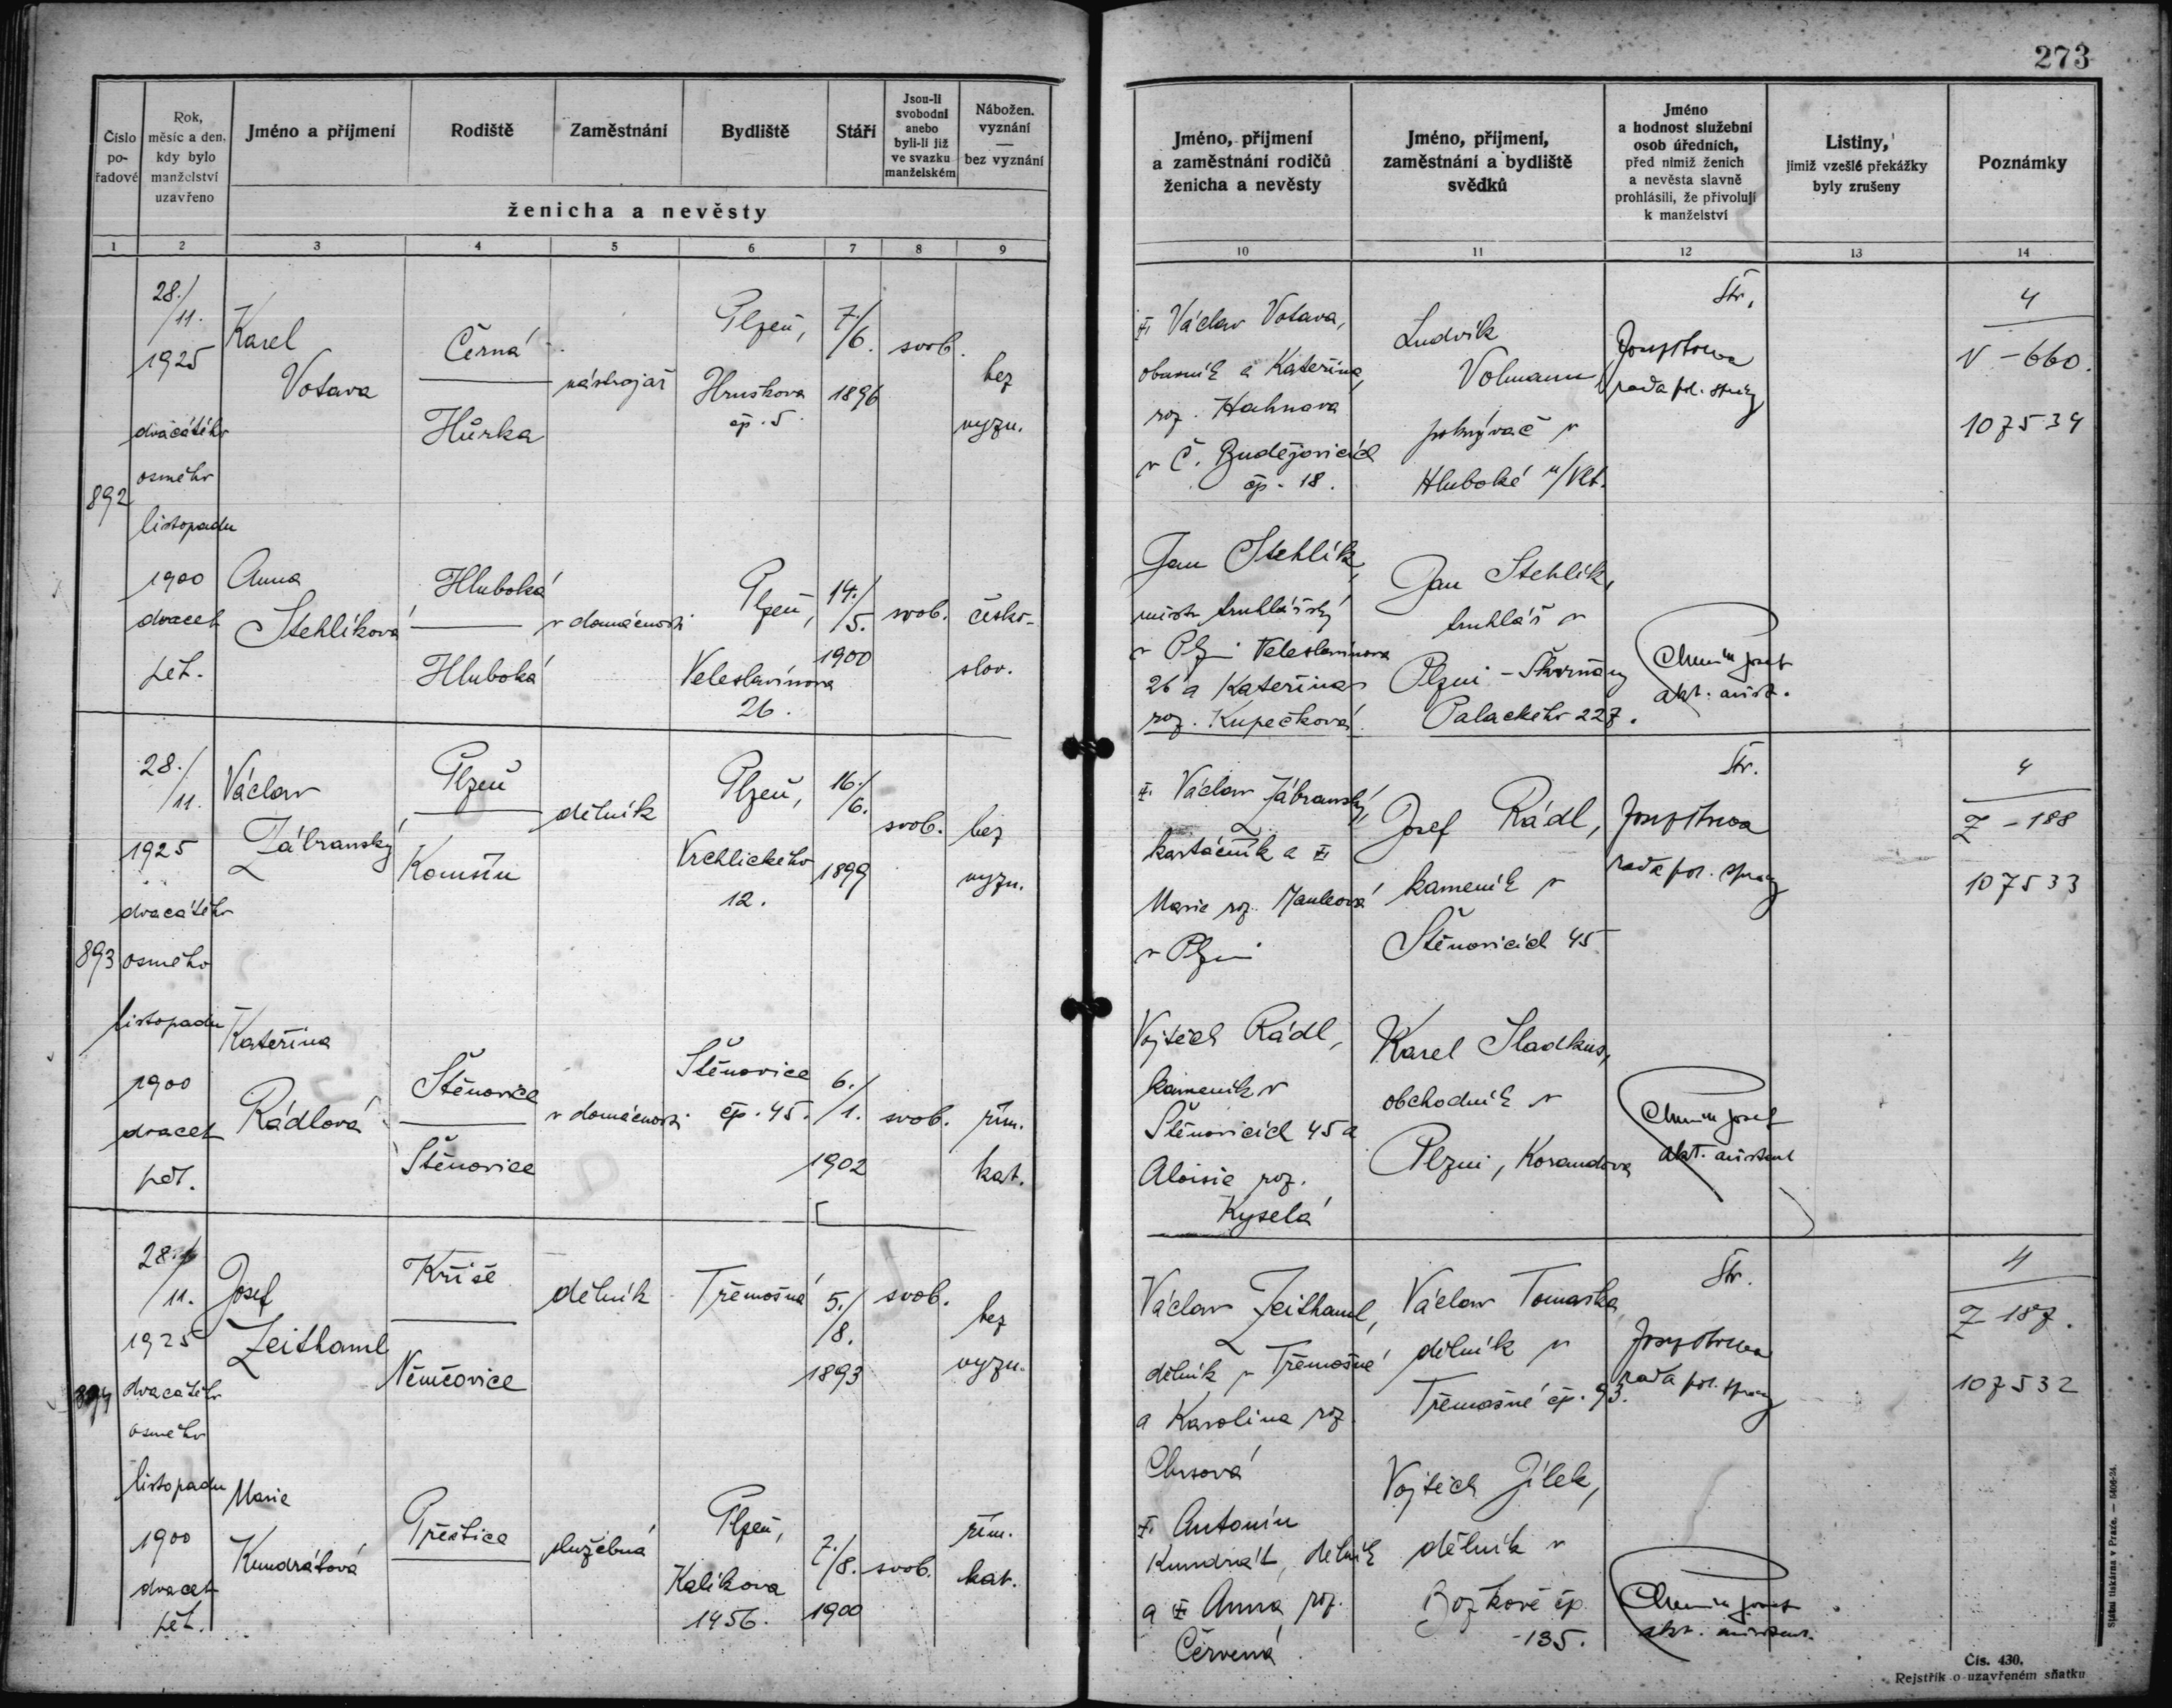 273
Číslo po-řadové
Rok, měsíc a den, kdy bylo manželství uzavřeno
Jméno a příjmení
Rodiště
Zaměstnání
Bydliště
Stáří
Jsou-li svobodni anebo byli-li již ve svazku manželském
Nábožen. vyznání — bez vyznání
ženicha a nevěsty
Jméno, příjmení a zaměstnání rodičů ženicha a nevěsty
Jméno, příjmení, zaměstnání a bydliště svědků
Jméno a hodnost služební osob úředních, před nimiž ženich a nevěsta slavně prohlásili, že přivolují k manželství
Listiny, jimiž vzešlé překážky byly zrušeny
Poznámky
1 2 3 4 5 6 7 8 9 10 11 12 13 14
892
28./11.
1925
dvacátého
osmého
listopadu
1900
dvacet
pět.
Karel
Votava
Černá
Hůrka
nástrojař
Plzeň,
Hruškova
čp. 5
7./6.
1896
svob.
bez
vyzn.
Václav Votava,
obuvník a Kateřina,
roz. Hahnova
v Č. Budějovicích
čp. 18.
Ludvík
Volmann
v
Hluboké n/Vlt.
Str.
rada pol. správy
4
V - 660.
107534
Anna
Stehlíková
Hluboká
Hluboká
v domácnosti
Plzeň,
Veleslavínova
26.
14./5.
1900
svob.
česko-
slov.
Jan Stehlík,
mistr truhlářský
v Plzni Veleslavínova
26 a Kateřina
roz. Kupečková
Jan Stehlík,
truhlář v
Plzni - Skvrňany
Palackého 227.
Josef
akt. asist.
893
28./11.
1925
dvacátého
osmého
listopadu
1900
dvacet
pět.
Václav
Zábranský
Plzeň
dělník
Plzeň,
Vrchlického
12.
16./6.
1899
svob.
bez
vyzn.
Václav Zábranský,
kartáčník a
Marie roz.
v Plzni
Josef Rádl,
kameník v
Štěnovicích 45
Str.
rada pol. správy
4
Z - 188
107533
Kateřina
Rádlová
Štěnovice
Štěnovice
v domácnosti
Štěnovice
čp. 45.
6./1.
1902
svob.
řím.
kat.
Vojtěch Rádl,
kameník v
Štěnovicích 45 a
Aloisie roz.
Kyselá
Karel Sladkus,
obchodník v
Plzni, Korandova
Josef
akt. asistent
894
28./11.
1925
dvacátého
osmého
listopadu
1900
dvacet
pět.
Josef
Zeithaml
Kříše
Němčovice
dělník
Třemošná
5./8.
1893
svob.
bez
vyzn.
Václav Zeithaml,
dělník v Třemošné
a Karolina roz.
Václav Tomaska,
dělník v
Třemošné čp. 93.
Str.
rada pol. správy
4
Z 187.
107532
Marie
Kundrátová
Přeštice
služebná
Plzeň,
Kalikova
1456.
7./8.
1900
svob.
řím.
kat.
Antonín
Kundrát, dělník
a Anna roz.
Červená
Vojtěch Jílek,
dělník v
Božkově čp.
135.
Josef
akt. asistent.
Státní tiskárna v Praze. — 5406-24.
Čís. 430.
Rejstřík o uzavřeném sňatku